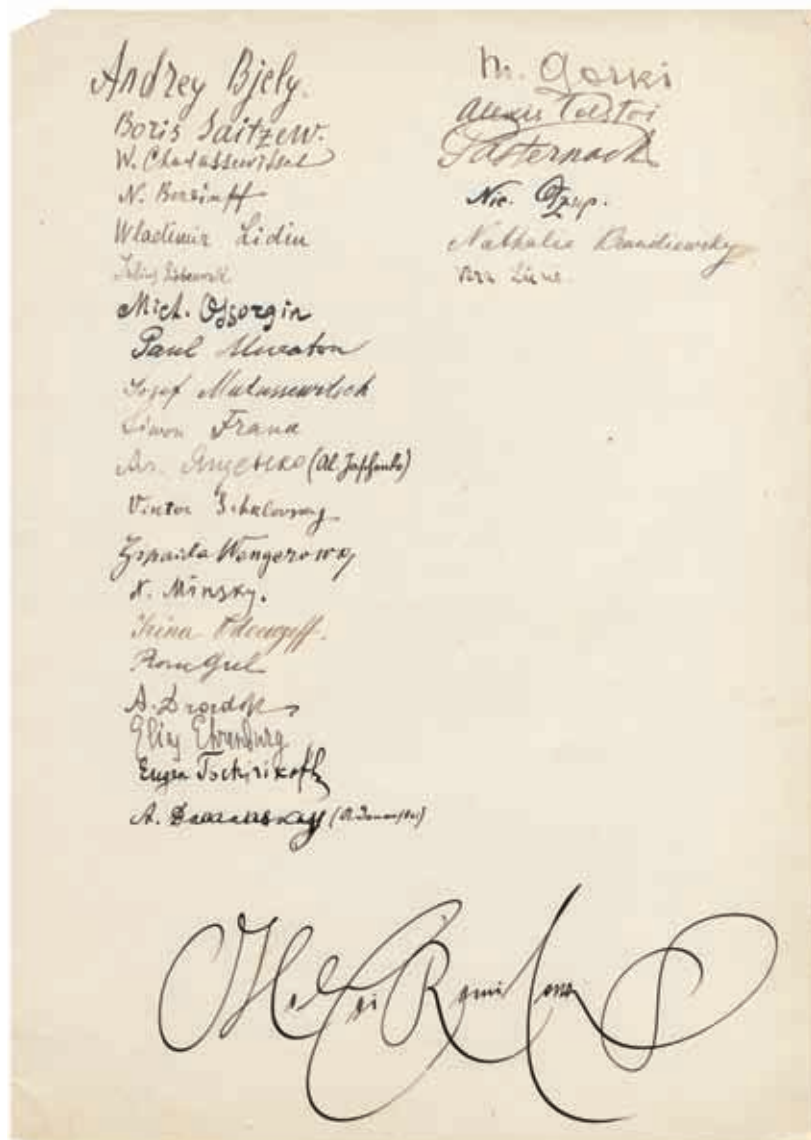 Andrey Bjely.
Boris Saitzew.
W. Chodassewitsch
N. Berdiaeff
Wladimir Lidin
Mich. Ossorgin
Paul Muratow
Josef Matussewitsch
Simon Frank
(Al. Jaschenko)
Viktor Schklovsky
Zinaida Wengerowa
N. Minsky.
Irina Odoewzeff.
Roman Gul
A. Drosdoff
Elias Ehrenburg
Eugen Tschirikoff
A. Damanskaja
M. Gorki
Alexis Tolstoi
Pasternack
Nic. Ozup.
Nathalie Krandiewsky